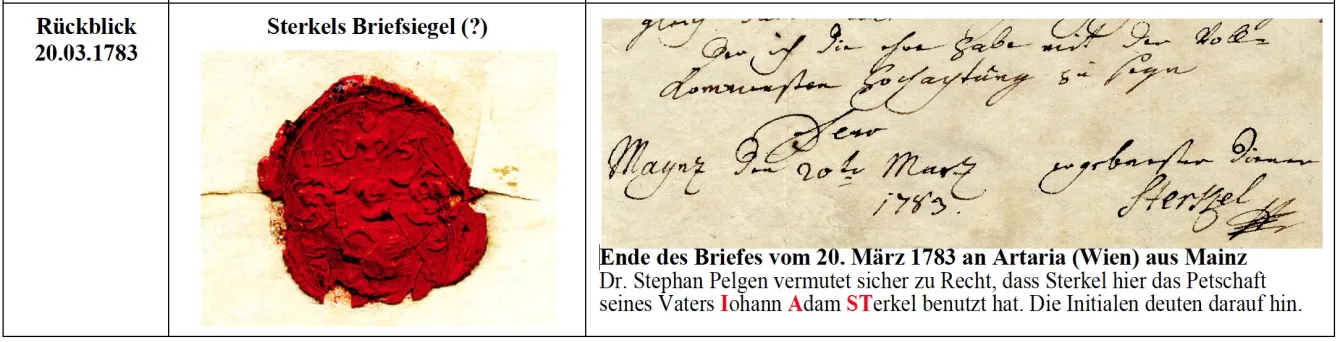 Rückblick
20.03.1783
Sterkels Briefsiegel (?)
Der ich die ehre habe mit der Voll-
kommensten Hochachtung zu seyn
Dero
Maynz den 20te Marz ergebenster diener
1783. Sterkel
Ende des Briefes vom 20. März 1783 an Artaria (Wien) aus Mainz
Dr. Stephan Pelgen vermutet sicher zu Recht, dass Sterkel hier das Petschaft
seines Vaters Iohann Adam STerkel benutzt hat. Die Initialen deuten darauf hin.